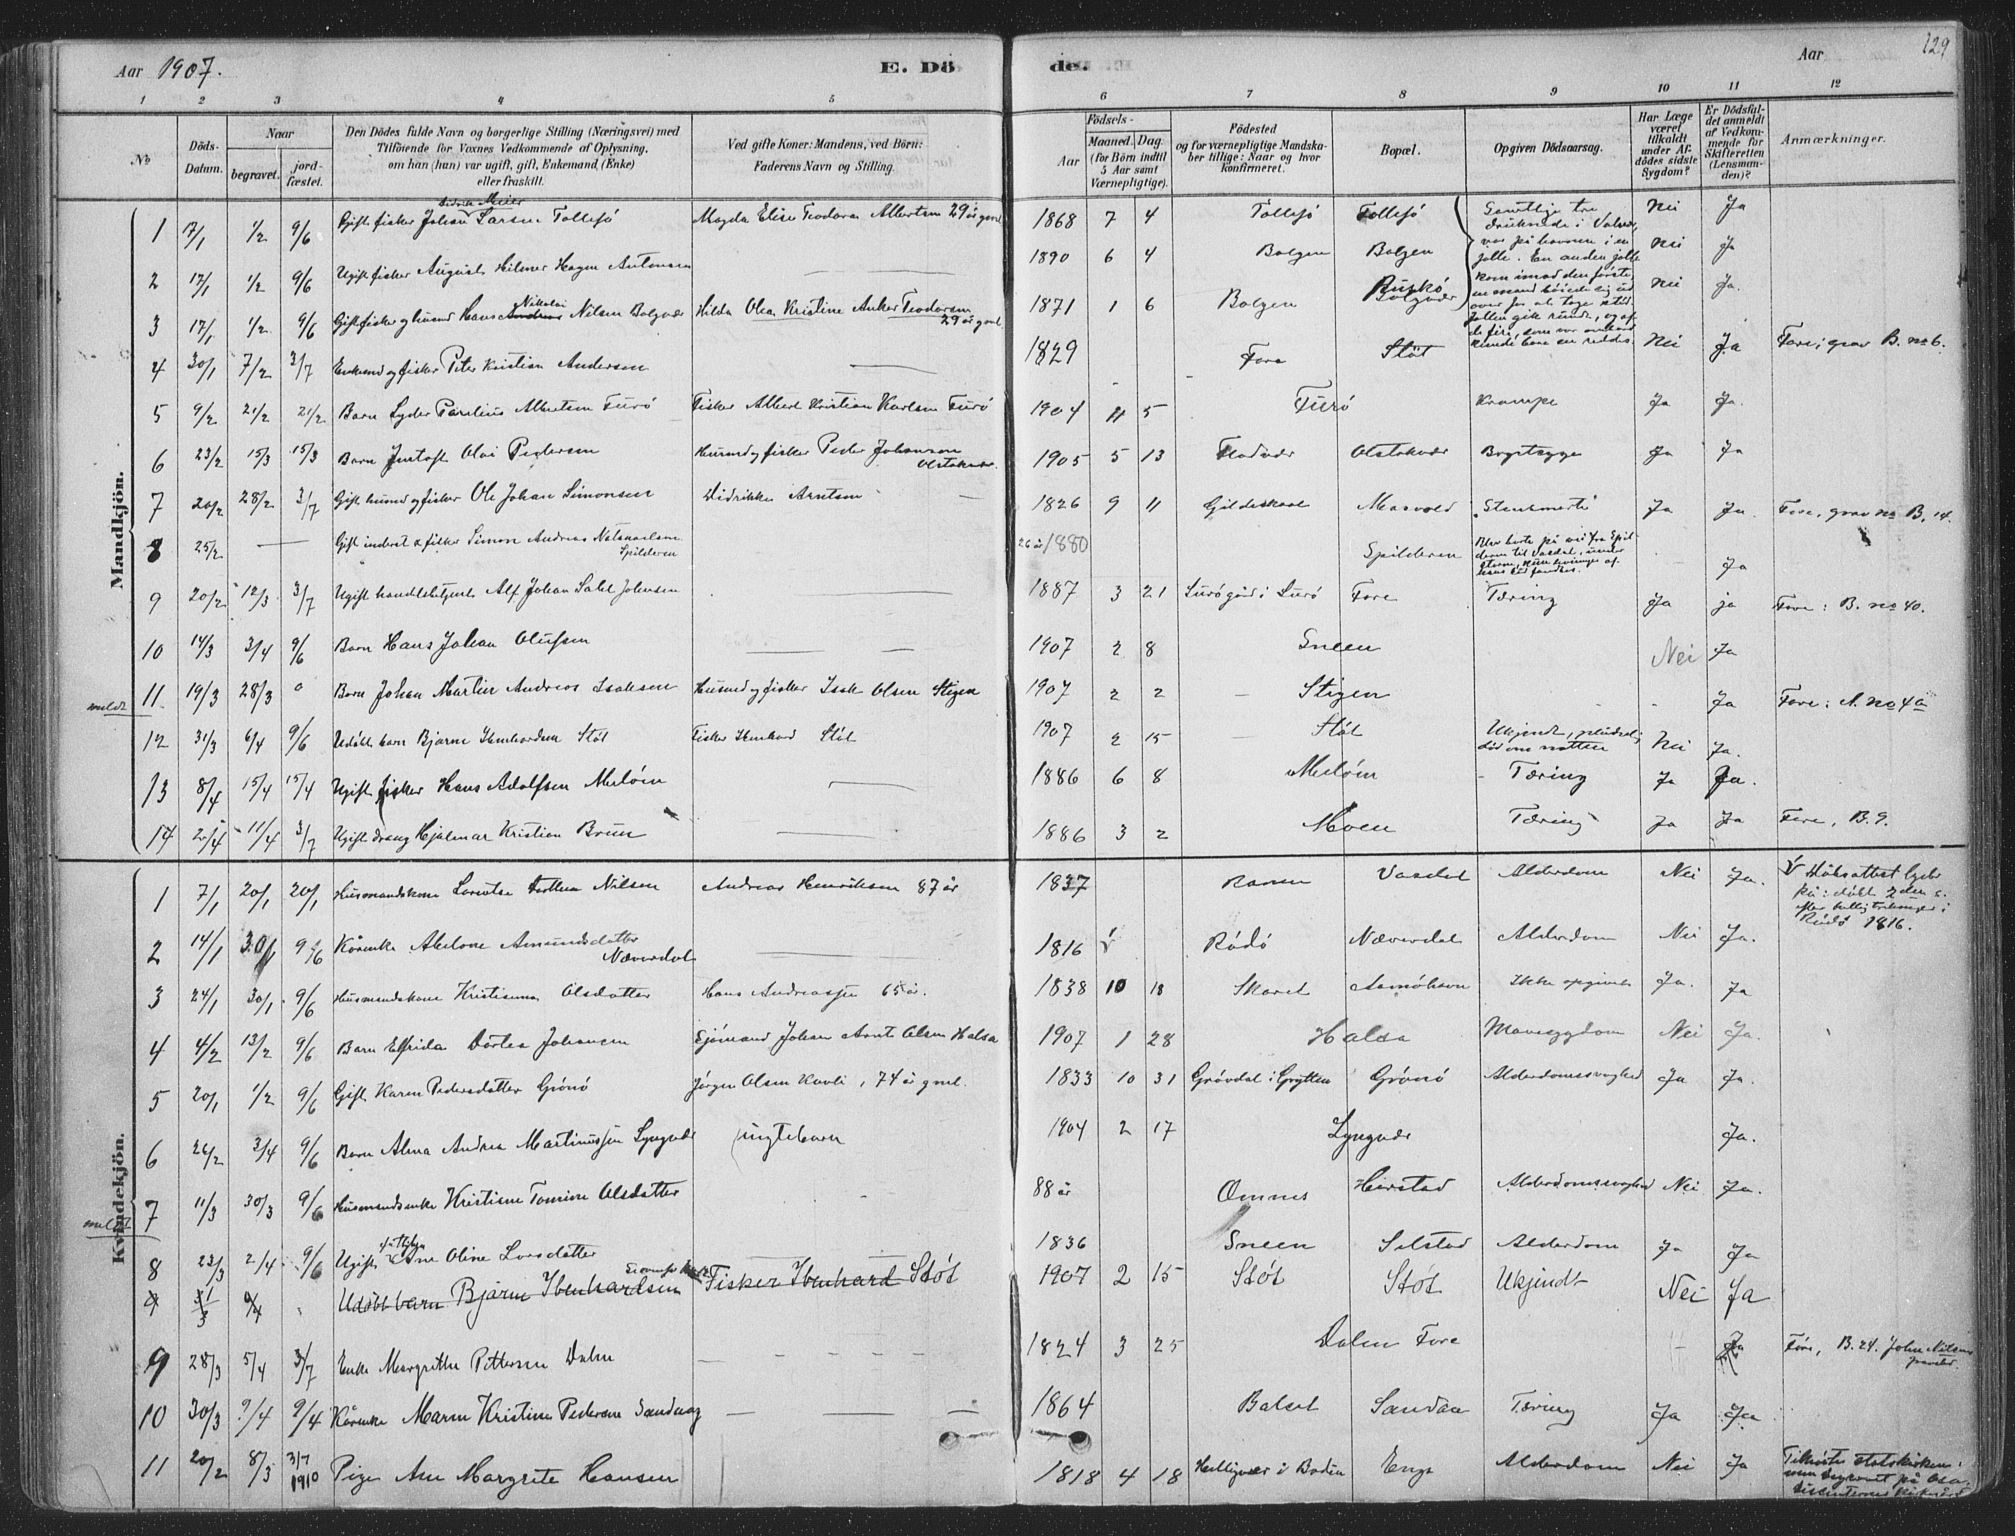 Aar 1907.
E. Dö
de.
Aar
129
1 2 3 4 5 6 7 8 9 10 11 12
No
Döds-
Datum.
Naar
begravet.
jord-
fæstet.
Den Dödes fulde Navn og borgerlige Stilling (Næringsvei) med
Tilföiende for Voxnes Vedkommende af Oplysning,
om han (hun) var ugift, gift, Enkemand, (Enke)
eller fraskilt.
Ved gifte Koner: Mandens, ved Börn:
Faderens Navn og Stilling.
Födsels-
Aar
Maaned. Dag.
(for Börn indtil
5 Aar samt
Værnepligtige).
Födested
og for værnepligtige Mandska-
ber tillige: Naar og hvor
konfirmeret.
Bopæl.
Opgiven Dödsaarsag.
Har Læge
været
tilkaldt
under Af-
dödes sidste
Sygdom?
Er Dödsfal-
det anmeldt
af Vedkom-
mende for
Skifteretten
(Lensman-
den)?
Anmærkninger.
Mandkjön.
1 17/1 1/2 9/6 Gift fisker Johan Meier Larsen Tollesjö Magda Elise Teodora Albertsen 29 år gml 1868 7 4 Tollesjö Tollesjö Samtlige tre druknede i Valvær, Nei Ja
2 17/1 1/2 9/6 Ugift fisker August Hilmer Hagen Antonsen 1890 6 4 Bolgen Bolgen var på havnen i en jolle. En anden jolle Nei Ja
3 17/1 1/2 9/6 Gift fisker og husmd Hans Nikolai Nilsen Bolgvær Hilda Olea Kristine Anker Teodorsen 29 år gml 1871 1 6 Bolgen Buskö Bolgvær kom imod den første Nei Ja.
4 30/1 7/2 3/7 Enkemd og fisker Peter Kristian Andersen 1829 Fore Stöt Nei Ja Fore; grav B. no 6.
5 9/2 21/2 21/2 Barn Lyder Parelius Albertsen Furö Fisker Albert Kristian Karlsen Furö 1904 11 5 Furö Krampe Ja Ja.
6 23/2 15/3 15/3 Barn Justoft Olai Pedersen Husmd og fisker Peder Johansen 1905 5 13 Flodvær Brystsyge Ja Ja
7 20/2 28/2 3/7 Gift husmd og fisker Ole Johan Simonsen Didrikke Arntsen 1826 9 11 Gildeskaal Masvold Ja Ja. Fore, grav no B. 14.
8 25/2 — Gift inderst & fisker Simon Andreas Natanaelsen Spilderen 26 år/1880 Spilderen Blev borte på vei fra Spilderen til Vasdal, under storm, kun levninger af hans båd fandtes. Ja
9 20/2 12/3 3/7 Ugift handelsbetjent Alf Johan Sahl Johnsen 1887 3 21 Surögård i Lurö Fore Tæring Ja ja Fore: B. no 40.
10 14/3 3/4 9/6 Barn Hans Johan Olufsen 1907 2 8 Sneen Nei Ja
meldt 11 19/3 28/3 Barn Johan Martin Andreas Isaksen Husmd og fisker Isak Olsen Stigen 1907 2 2 Stigen Ja Fore: A. no 4a
12 31/3 6/4 9/6 Udöbt barn Bjarne Ibenhardsen Stöt Fisker Ibenhard Stöt 1907 2 15 Stöt Ukjendt, pludselig död om natten Nei Ja.
13 8/4 15/4 15/4 Ugift fisker Hans Adolfsen Melöen 1886 6 8 Melöen Tæring Ja Ja.
14 2/4 11/4 3/7 Ugift dreng Hjalmar Kristian Brun 1886 3 2 Moen Tæring Ja Ja Fore, B. 9.
Kvindekjön.
1 7/1 20/1 20/1 Husmandskone Lorentse Nilsen Andreas Henriksen 87 år 1837 Ranen Vasdal Alderdom Nei Ja. V Dåbsattest lyder
2 14/1 30/1 9/6 Kårenke Abelone Amundsdatter Næverdal 1816 V Rödö Næverdal Alderdom Nei Ja. Rödö 1816.
3 24/1 30/1 9/6 Husmandskone Kristianna Olsdatter Hans Andreassen 65 år. 1838 10 18 Skaret Asmöhavn Ikke opgivet Ja. Ja
4 4/2 13/2 9/6 Barn Elfrida Dortea Johansen Sjömand Johan Arnt Olsen Halsa 1907 1 28 Halsa Mavesygdom Nei Ja.
5 20/1 1/2 9/6 Gift Karen Pedersdatter Grönö Jörgen Olsen Kavli, 74 år gml. 1833 10 31 Grövdal i Grytten Grönö Alderdomssvaghed Ja Ja.
6 26/2 3/4 9/6 Barn Alma Andrea Martinussen Lyngvær uegtebarn 1904 2 17 Lyngvær Ja.
meldt 7 11/3 30/3 9/6 Husmandsenke Kristine Tomine Olsdatter 88 år Ømnes Heistad Alderdomssvaghed Nei Ja.
8 23/3 2/4 9/6 Ugift fattiglem Ane Oline Larsdatter 1836 Sneen Selstad Alderdom Ja Ja
9 31/3 6/4 Udöbt barn Bjarne Ibenhardsen Fisker Ibenhard Stöt 1907 2 15 Stöt Stöt Ukjendt Nei Ja
9 28/3 5/4 3/7 Enke Margrethe Pettersen Dalen 1824 3 25 Dalen Fore Ja Fore, B. 24. John Nilsens gravsted.
10 30/3 9/4 9/4 Kårenke Maren Kristine Pedersen Sandaag 1864 Balset Sandaa Tæring Ja Ja
11 20/2 8/3 3/7 1910 Pige Ane Margrete Hansen 1818 4 18 Helligvær i Bodin Enga Alderdom Nei Ja Tilhörte statskirken,